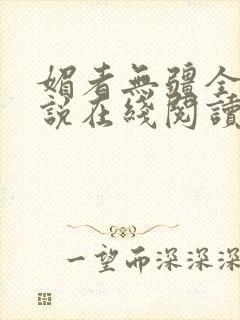 媚者無疆全
說在綫閱讀
一望而深深深